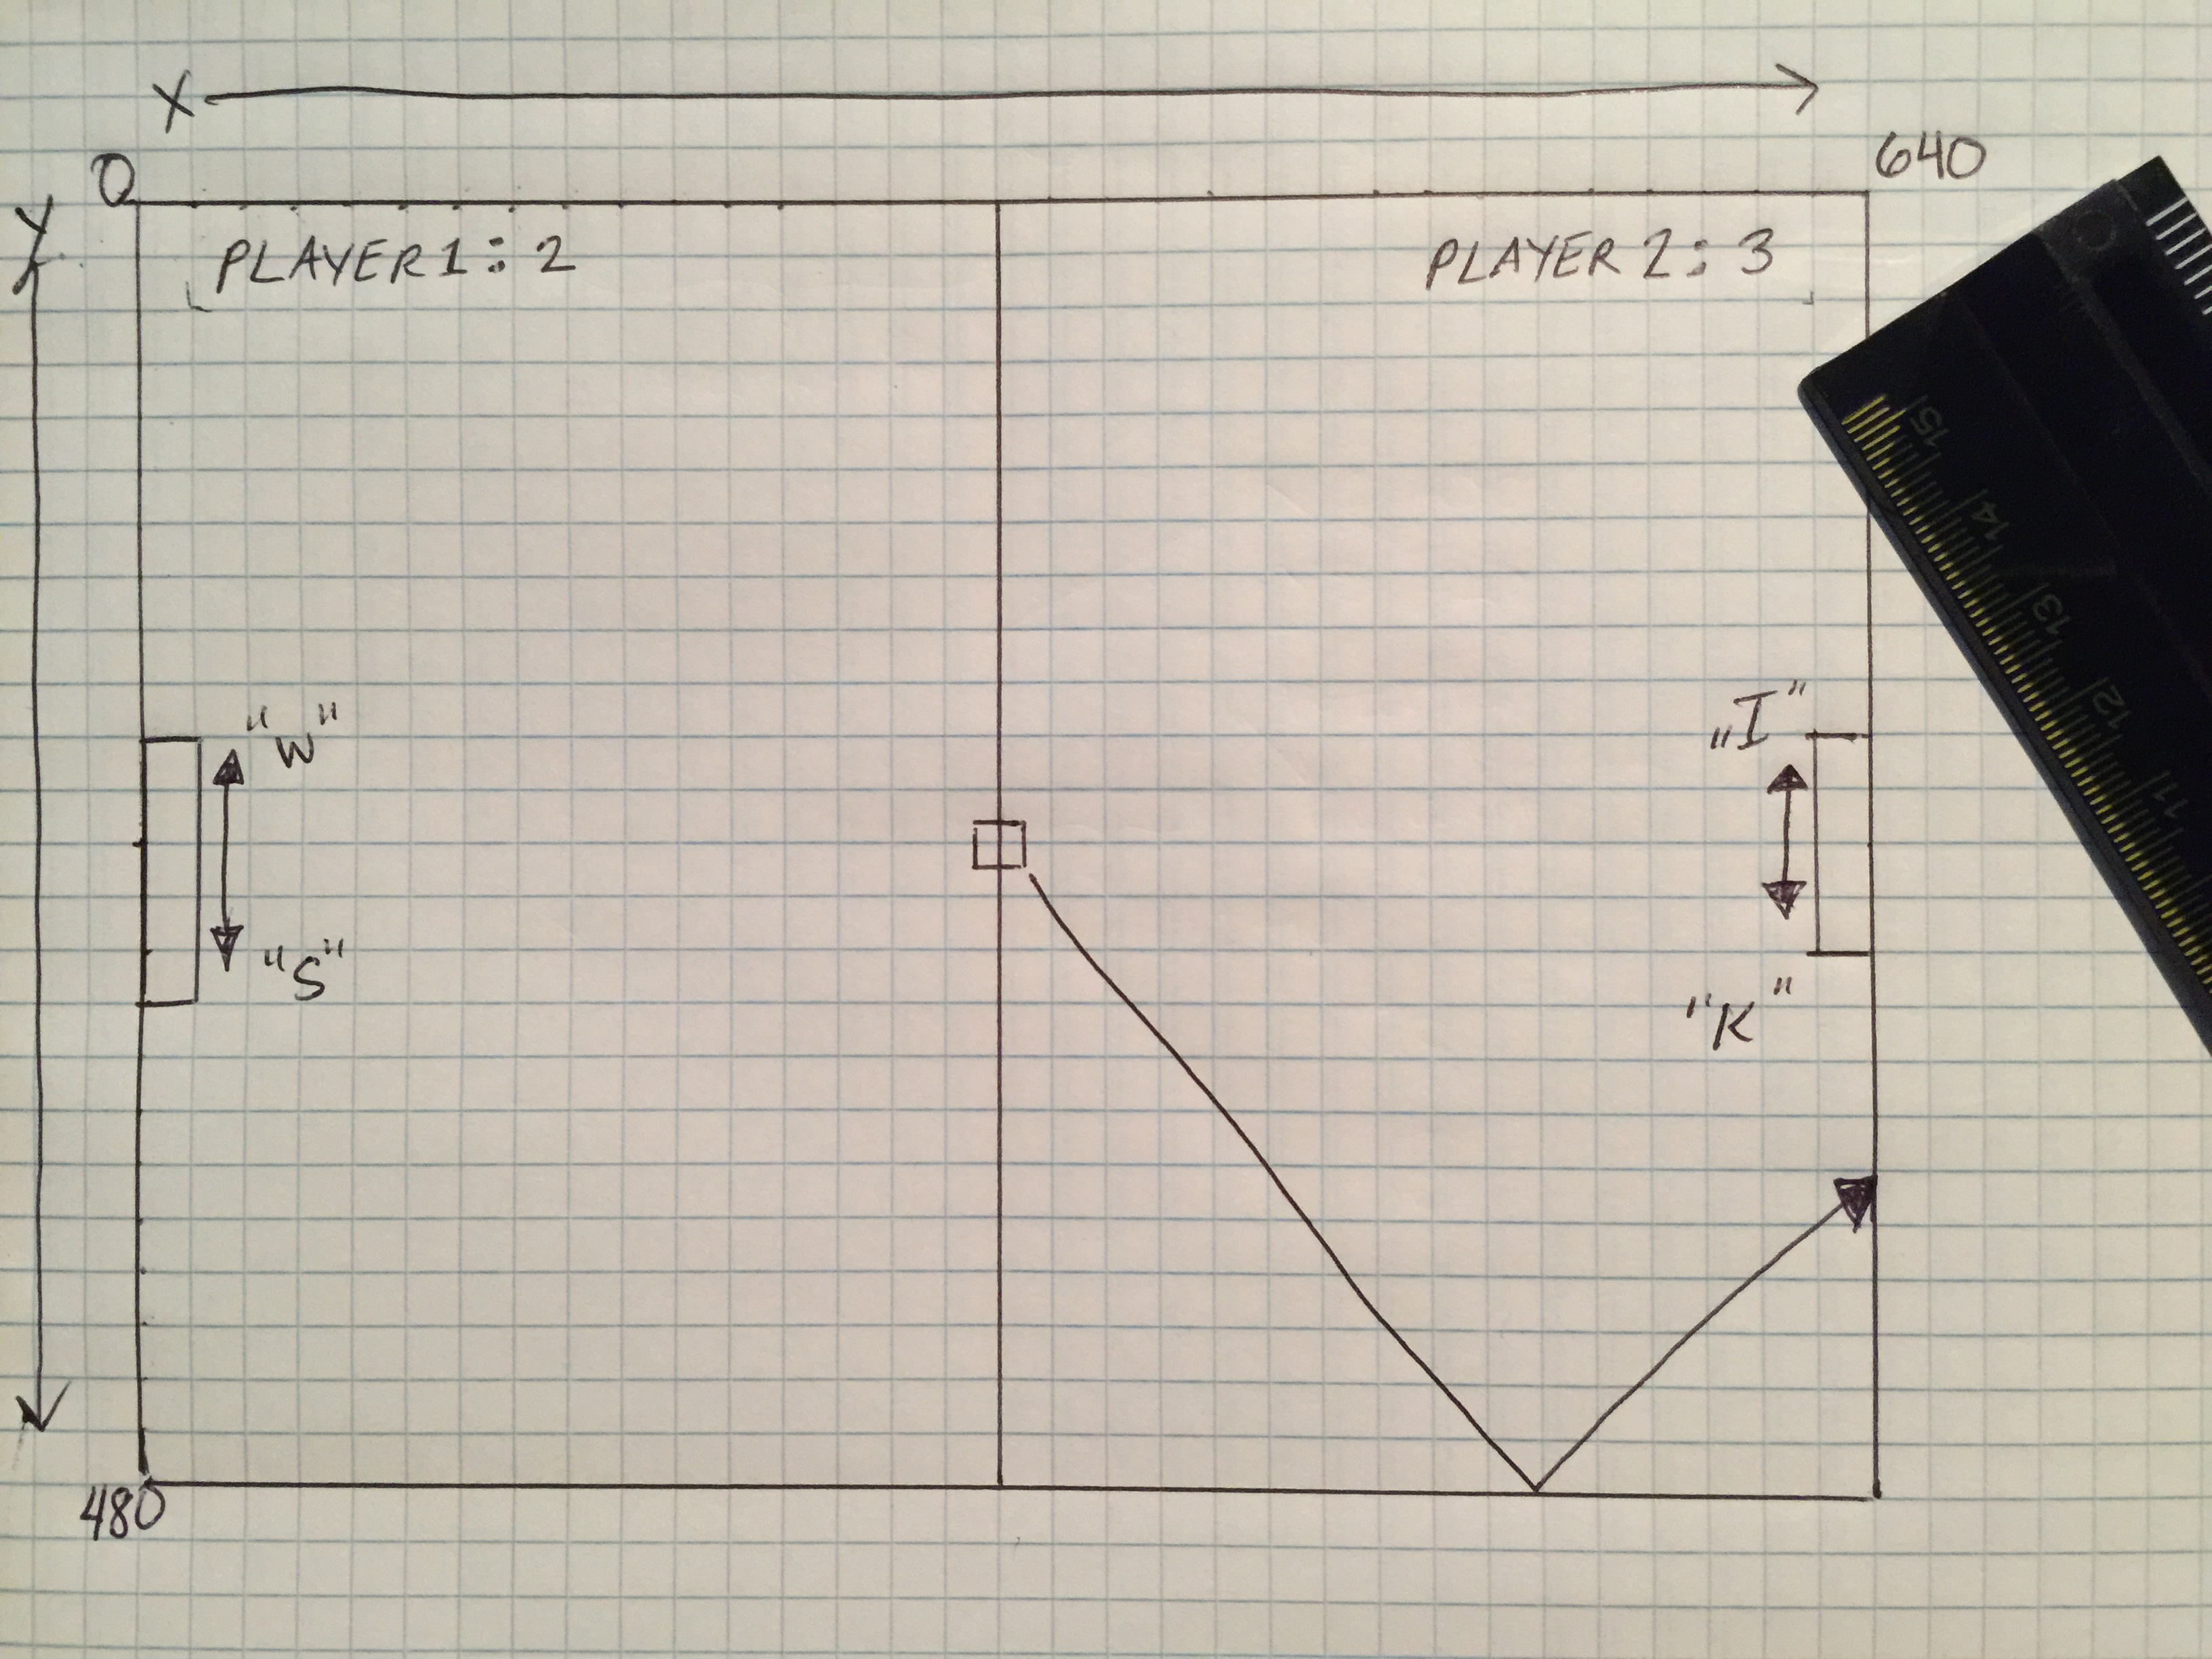 X
0
640
Y
PLAYER 1: 2
PLAYER 2: 3
"W"
"I"
"S"
"K"
480
15
14
13
12
11